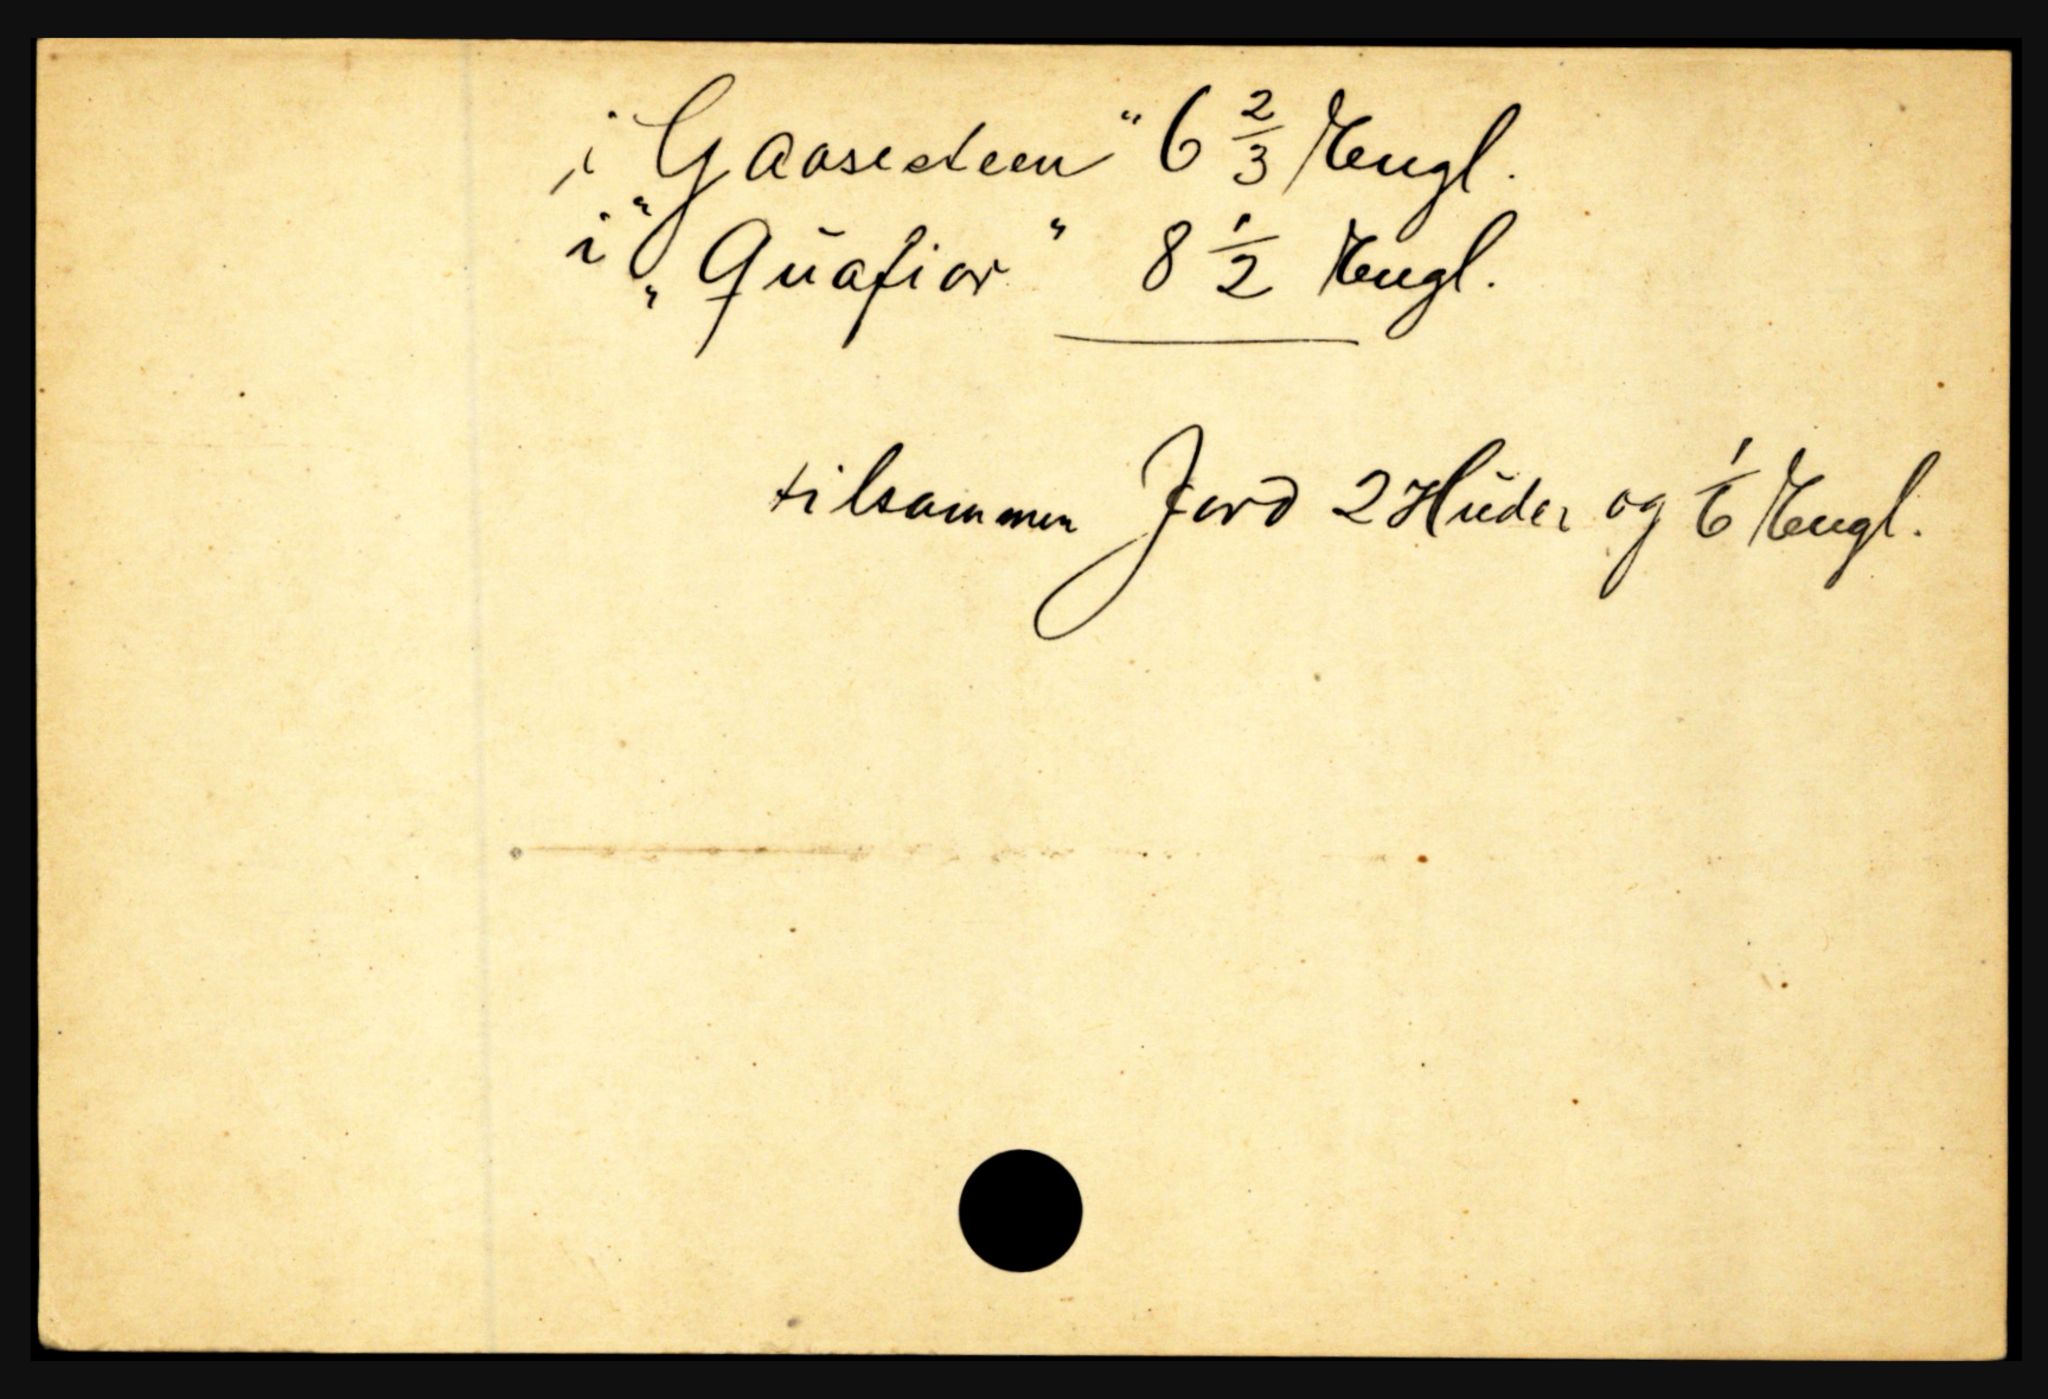 i „Gaasesteen" 6 2/3 Engl.
i „Quafior" 8 1/2 Engl.
tilsammen Jord 2 Huder og 1/6 Engl.